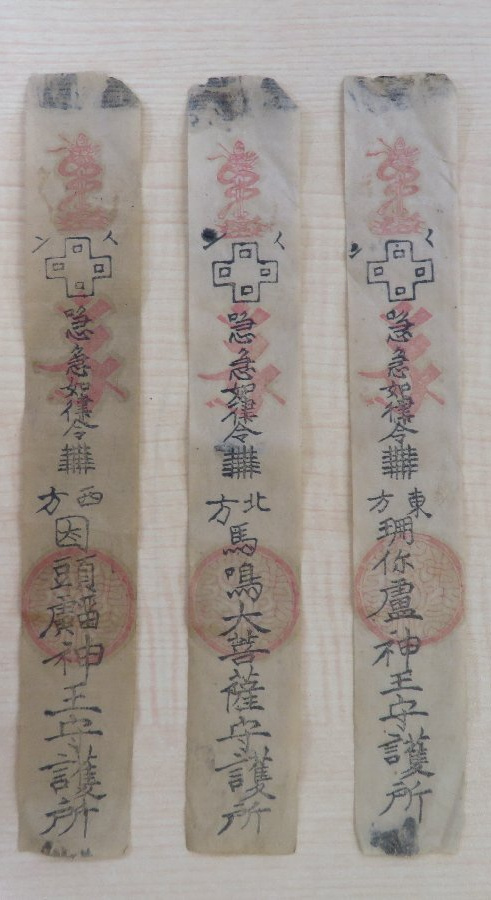 喼急如律令
東方
珊你盧神王守護所
喼急如律令
北方
馬鳴大菩薩守護所
喼急如律令
西方
因頭廣神王守護所